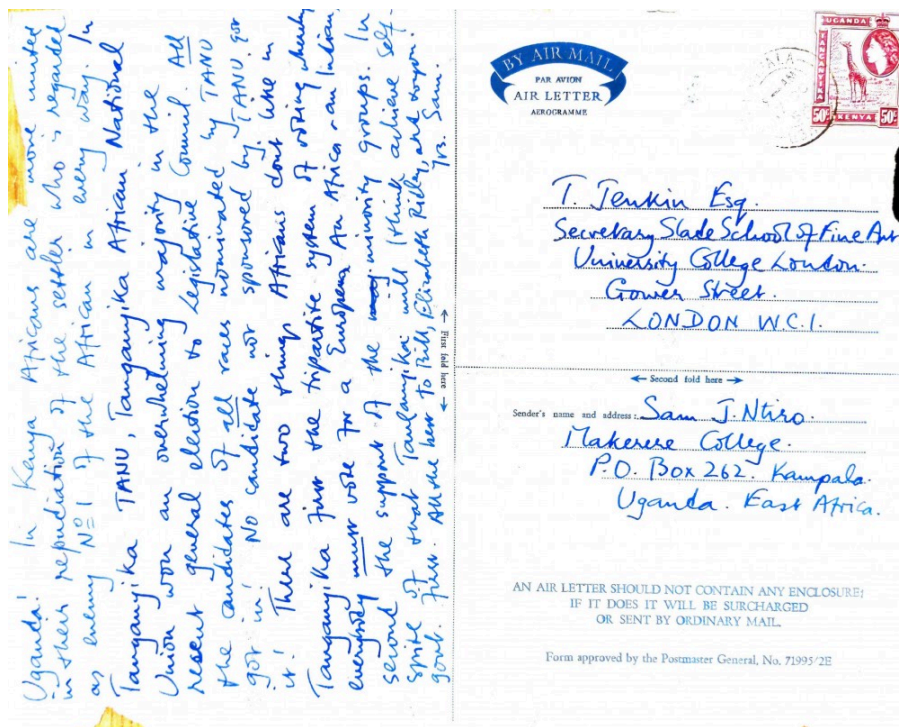 Uganda! In Kenya Africans are more united
in their repudiation of the settler who is regarded
as enemy Nº 1 of the African in every way. In
Tanganyika TANU, Tanganyika African National
Union won an overwhelming majority in the
recent general election to Legislative Council. All
the candidates of all races nominated by TANU got
got in! NO candidate not sponsored by TANU got
it! There are two things Africans dont like in
Tanganyika first the tripartite system of voting whereby
everybody must vote for a European, An African, an Indian,
second the support of the minority groups. In
spite of that Tanganyika will I think achieve self-
govt. first. All the best to Bill, Elizabeth Richy, and to you.
Yrs. Sam.
BY AIR MAIL
PAR AVION
AIR LETTER
AEROGRAMME
UGANDA
TANGANYIKA
KENYA
50c
50c
T. Jenkin Esq.
Secretary Slade School of Fine Art
University College London.
Gower Street.
LONDON W.C.1.
← First fold here →
← Second fold here →
Sender's name and address: Sam J. Ntiro.
Makerere College.
P.O. Box 262. Kampala.
Uganda. East Africa.
AN AIR LETTER SHOULD NOT CONTAIN ANY ENCLOSURE;
IF IT DOES IT WILL BE SURCHARGED
OR SENT BY ORDINARY MAIL.
Form approved by the Postmaster General, No. 71995/2E